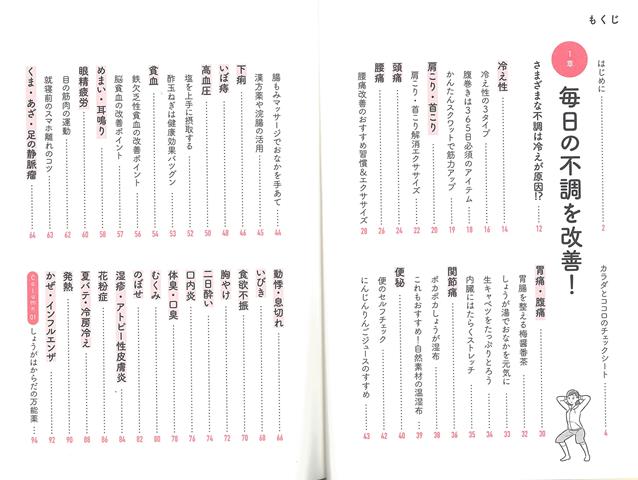 もくじ
はじめに 2
カラダとココロのチェックシート 4
1章
毎日の不調を改善!
さまざまな不調は冷えが原因!? 12
冷え性 14
冷え性の3タイプ 16
腹巻きは365日必須のアイテム 18
かんたんスクワットで筋力アップ 19
肩こり・首こり 20
肩こり・首こり解消エクササイズ 22
頭痛 24
腰痛 26
腰痛改善のおすすめ習慣&エクササイズ 28
胃痛・腹痛 30
胃腸を整える梅醤番茶 32
しょうが湯でおなかを元気に 33
生キャベツをたっぷりとろう 34
内臓にはたらくストレッチ 35
関節痛 36
ポカポカしょうが湿布 38
これもおすすめ!自然素材の温湿布 39
便秘 40
便のセルフチェック 42
にんじんりんごジュースのすすめ 43
腸もみマッサージでおなかを手あて 44
漢方薬や浣腸の活用 45
下痢 46
いぼ痔 48
高血圧 50
塩を上手に摂取する 52
酢玉ねぎは健康効果バツグン 53
貧血 54
鉄欠乏性貧血の改善ポイント 56
脳貧血の改善ポイント 57
めまい・耳鳴り 58
眼精疲労 60
目の筋肉の運動 62
就寝前のスマホ離れのコツ 63
くま・あざ・足の静脈瘤 64
動悸・息切れ 66
いびき 68
食欲不振 70
胸やけ 72
二日酔い 74
口内炎 76
体臭・口臭 78
むくみ 80
のぼせ 82
湿疹・アトピー性皮膚炎 84
花粉症 86
夏バテ・冷房冷え 88
発熱 90
かぜ・インフルエンザ 92
Column 01
しょうがはからだの万能薬 94